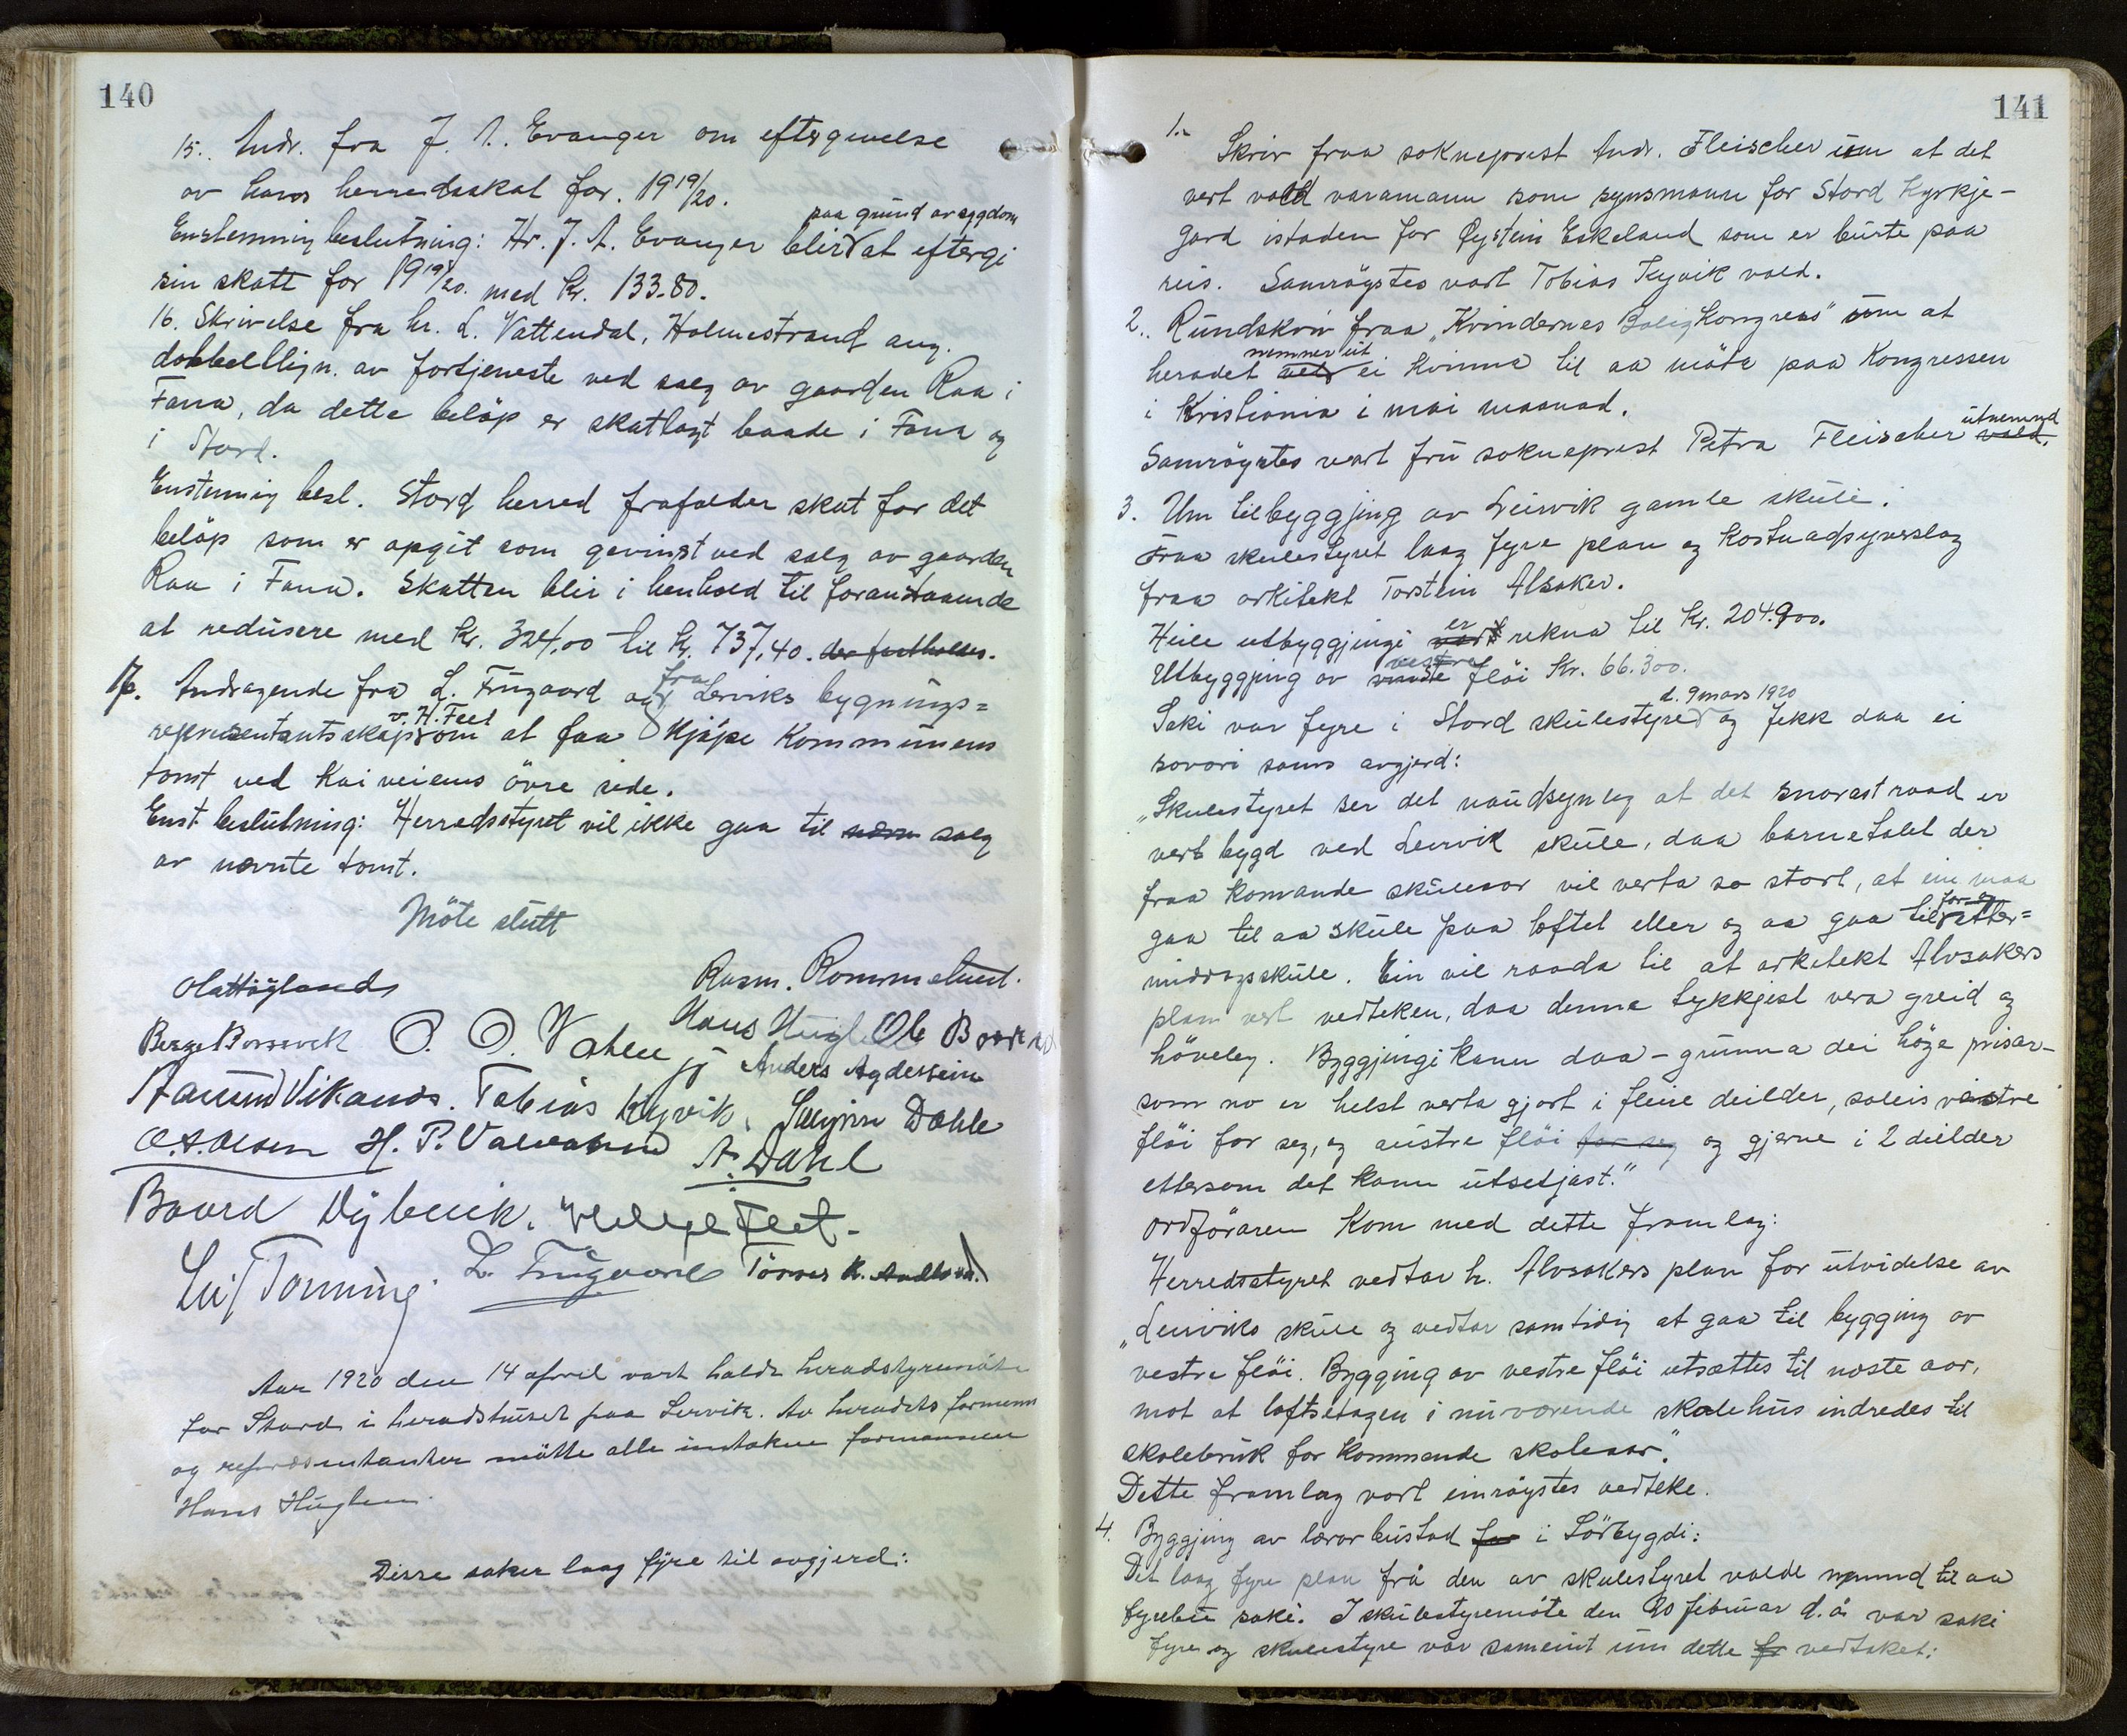 140
15. Andr. fra J. A. Evanger om eftergivelse
av hans herredsskat for 1919/20.
paa grund av sygdom
Enstemmig beslutning: Hr. J. A. Evanger blir at eftergi
sin skatt for 1919/20. med kr. 133.80.
16. Skrivelse fra hr. L. Vattendal, Holmestrand ang.
dobbelllign. av fortjeneste ved salg av gaarden Raa i
Fana, da dette beløp er skatlagt baade i Fana og
i Stord.
Enstemmig besl. Stord herred frafalder skat for det
beløp som er opgit som gevinst ved salg av gaarden
Raa i Fana. Skatten blir i henhold til foranstaaende
at redusere med kr. 324,00 til kr. 737,40. der fastholdes.
17. Andragende fra L. Fuugaard og fra Lerviks bygnings=
representantskap v. H. Feet om at faa kjøpe kommunens
tomt ved Kaiveiens övre side.
Enst. beslutning: Herredsstyret vil ikke gaa til salg
av nævnte tomt.
Möte slutt
Ola Høyland Rasm. Rommetveit.
Berge Borsvik O. O. Valen Hans Huglen Ole Baard
Anders Agdestein
Aamund Vikanes. Tobias Kyvik. Dahle
O. A. Olsen H. P. Valvatne A. Dahl
Baard Dybvik. Helge Feet.
Leif Tonning. L. Fuugaard Törres K.
Aar 1920 den 14 april vart halde heradstyremøte
for Stord i heradshuset paa Lervik. Av heradets formenn
og representanter møtte alle untakne formannen
Hans Huglen.
Disse saker laag fyre til avgjerd:
141
1. Skriv fraa sokneprest Andr. Fleischer um at det
vert vald varamann som synsmann for Stord Kyrkje-
gard istaden for Øystein Eskeland som er burte paa
reis. Samrøystes vart Tobias Kyvik vald.
2. Rundskriv fraa "Kvindernes Boligkongress" um at
heradet nemner ut ei kvinna til aa möta paa Kongressen
i Kristiania i mai maanad.
Samröystes vart fru sokneprest Petra Fleischer utnemnd vald.
3. Um tilbyggjing av Leirvik gamle skule.
Fraa skulestyret laag fyre plan og kostnadsyverslag
fraa arkitekt Torstein Alsaker.
Heile utbyggjingi er vart rekna til Kr. 204.900.
Utbyggjing av vestre flöi Kr. 66.300.
Saki var fyre i Stord skulestyre d. 9 mars 1920 og fekk daa ei
sovori sams avgjerd:
"Skulestyret ser det naudsynleg at det snorast raad er
vert bygd ved Leirvik skule, daa barnetalet der
fraa komande skuleaar vil verta so stort, at ein maa
gaa til aa skule paa loftet eller og aa gaa til for- og etter=
middagsskule. Ein vil raada til at arkitekt Alvsakers
plan vert vedteken, daa denne tykkjest vera greid og
høveleg. Byggjingi kann daa - grunna dei höge prisar-
som no er helst verta gjort i fleire deilder, soleis vestre
flöi for seg, og austre flöi for seg og gjerne i 2 deilder
ettersom det kann utsetjast."
Ordföraren kom med dette framlag:
"Herredsstyret vedtar hr. Alvsakers plan for utvidelse av
Leirviks skule og vedtar samtidig at gaa til bygging av
vestre flöi. Bygging av vestre flöi utsættes til næste aar,
mot at loftsetagen i nuværende skolehus indredes til
skolebruk for kommende skoleaar."
Dette framlag vart einröystes vedteke.
4. Byggjing av lærarbustad for i Sörbygdi:
Det laag fyre plan frå den av skulestyret valde nemnd til aa
fyrebu saki. I skulestyremöte den 20 februar d. å. var saki
fyre og skulestyre var sameint um dette vedtaket: